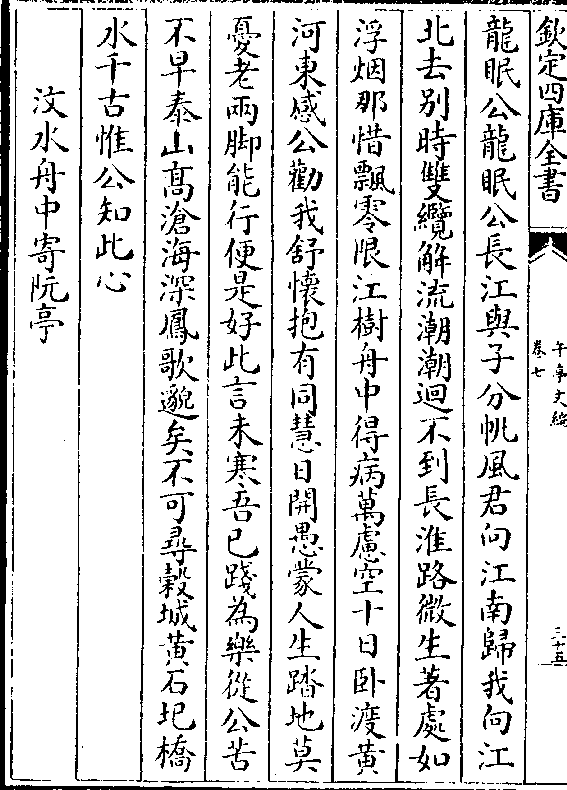 欽定四庫全書
午亭文編
卷七
三十五
龍眠公龍眠公長江與子分帆風君向江南歸我向江
北去别時雙纜解流潮潮迴不到長淮路微生著處如
浮烟那惜飄零限江樹舟中得病萬慮空十日卧渡黄
河東感公勸我舒懷抱有同慧日開愚蒙人生踏地莫
憂老兩脚能行便是好此言未寒吾已踐為樂從公苦
不早泰山高滄海深鳳歌邈矣不可尋榖城黄石圯橋
水千古惟公知此心
汶水舟中寄阮亭